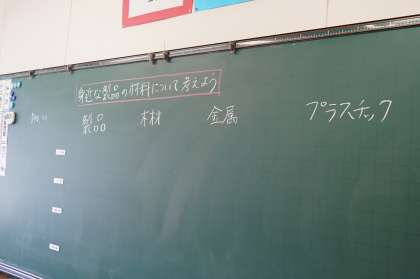 身近な製品の材料について考えよう
製品 木材 金属 プラスチック